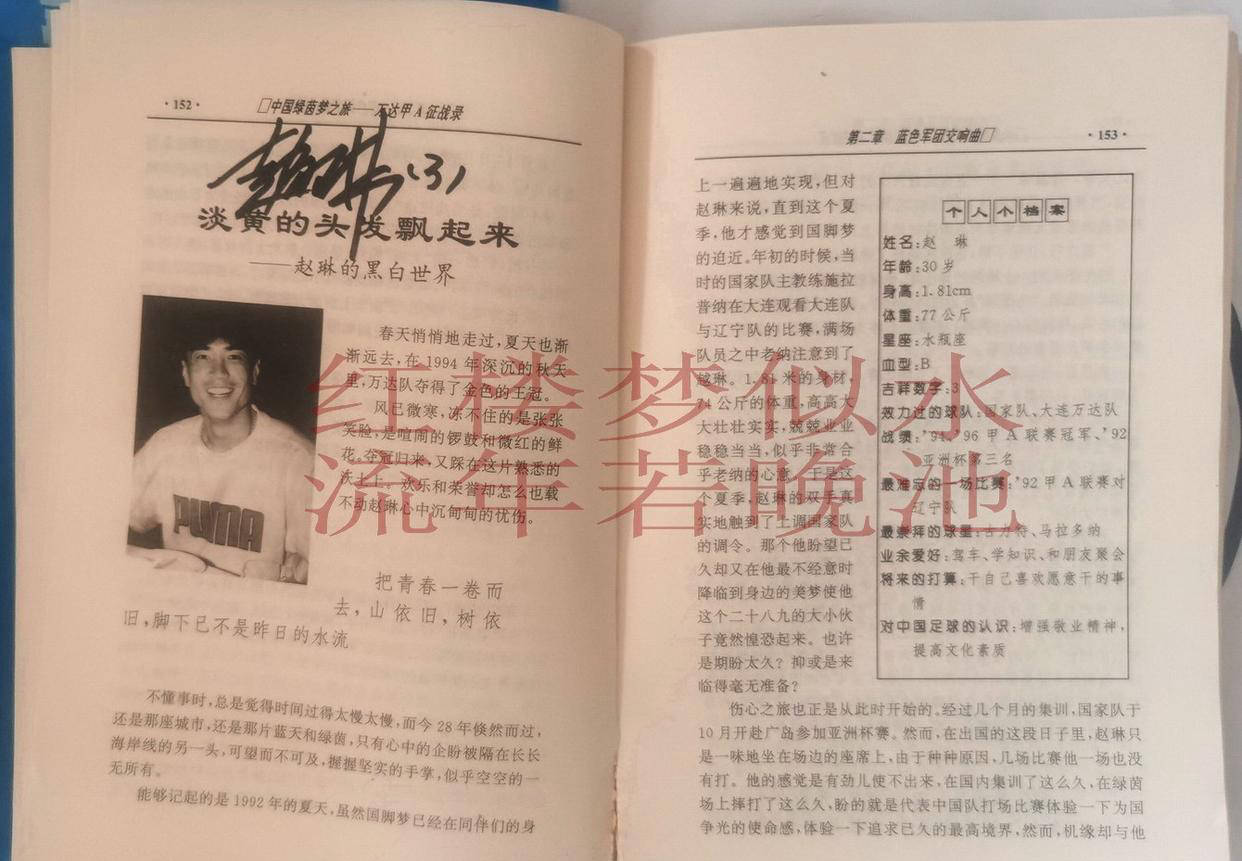 ·152·
□中国绿茵梦之旅——万达甲A征战录
赵琳(3)
淡黄的头发飘起来
——赵琳的黑白世界
春天悄悄地走过，夏天也渐
渐远去，在1994年深沉的秋天
里，万达队夺得了金色的王冠。
风已微寒，冻不住的是张张
笑脸，是喧闹的锣鼓和微红的鲜
花。夺冠归来，又踩在这片熟悉的
沃土上，欢乐和荣誉却怎么也载
不动赵琳心中沉甸甸的忧伤。
PUMA
把青春一卷而
去，山依旧，树依
旧，脚下已不是昨日的水流
不懂事时，总是觉得时间过得太慢太慢，而今28年倏然而过，
还是那座城市，还是那片蓝天和绿茵，只有心中的企盼被隔在长长
海岸线的另一头，可望而不可及，握握坚实的手掌，似乎空空的一
无所有。
能够记起的是1992年的夏天，虽然国脚梦已经在同伴们的身
第二章 蓝色军团交响曲□
·153·
上一遍遍地实现，但对
赵琳来说，直到这个夏
季，他才感觉到国脚梦
的迫近。年初的时候，当
时的国家队主教练施拉
普纳在大连观看大连队
与辽宁队的比赛，满场
队员之中老纳注意到了
赵琳。1.81米的身材，
74公斤的体重，高高大
大壮壮实实，兢兢业业
稳稳当当，似乎非常合
乎老纳的心意。于是这
个夏季，赵琳的双手真
实地触到了上调国家队
的调令。那个他盼望已
久却又在他最不经意时
降临到身边的美梦使他
这个二十八九的大小伙
子竟然惶恐起来。也许
是期盼太久？抑或是来
临得毫无准备？
个人个档案
姓名：赵 琳
年龄：30岁
身高：1.81cm
体重：77公斤
星座：水瓶座
血型：B
吉祥数字：3
效力过的球队：国家队、大连万达队
战绩：'94、'96甲A联赛冠军、'92
亚洲杯第三名
最难忘的一场比赛：'92甲A联赛对
辽宁队
最崇拜的球星：古力特、马拉多纳
业余爱好：驾车、学知识、和朋友聚会
将来的打算：干自己喜欢愿意干的事
情
对中国足球的认识：增强敬业精神，
提高文化素质
伤心之旅也正是从此时开始的。经过几个月的集训，国家队于
10月开赴广岛参加亚洲杯赛。然而，在出国的这段日子里，赵琳只
是一味地坐在场边的座席上，由于种种原因，几场比赛他一场也没
有打。他的感觉是有劲儿使不出来，在国内集训了这么久，在绿茵
场上摔打了这么久，盼的就是代表中国队打场比赛体验一下为国
争光的使命感，体验一下追求已久的最高境界，然而，机缘却与他
红楼梦似水
流年若晚池